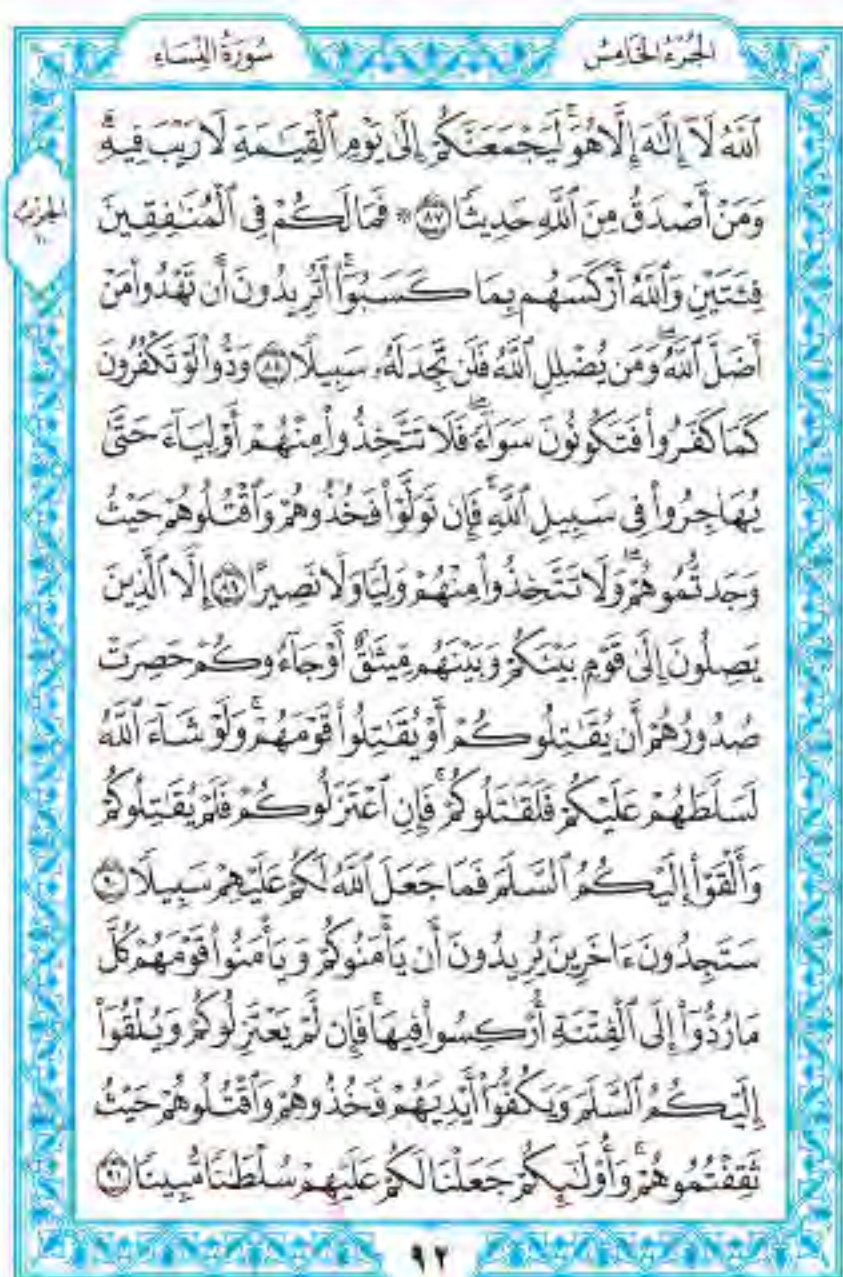 الجُزْءُ الخَامِسُ
سُورَةُ النِّسَاءِ
ٱللَّهُ لَآ إِلَٰهَ إِلَّا هُوَۚ لَيَجْمَعَنَّكُمْ إِلَىٰ يَوْمِ ٱلْقِيَٰمَةِ لَا رَيْبَ فِيهِۗ
وَمَنْ أَصْدَقُ مِنَ ٱللَّهِ حَدِيثًا ٨٧ ۞ فَمَا لَكُمْ فِى ٱلْمُنَٰفِقِينَ
فِئَتَيْنِ وَٱللَّهُ أَرْكَسَهُم بِمَا كَسَبُوٓا۟ۚ أَتُرِيدُونَ أَن تَهْدُوا۟ مَنْ
أَضَلَّ ٱللَّهُۖ وَمَن يُضْلِلِ ٱللَّهُ فَلَن تَجِدَ لَهُۥ سَبِيلًا ٨٨ وَدُّوا۟ لَوْ تَكْفُرُونَ
كَمَا كَفَرُوا۟ فَتَكُونُونَ سَوَآءًۖ فَلَا تَتَّخِذُوا۟ مِنْهُمْ أَوْلِيَآءَ حَتَّىٰ
يُهَاجِرُوا۟ فِى سَبِيلِ ٱللَّهِۚ فَإِن تَوَلَّوْا۟ فَخُذُوهُمْ وَٱقْتُلُوهُمْ حَيْثُ
وَجَدتُّمُوهُمْۖ وَلَا تَتَّخِذُوا۟ مِنْهُمْ وَلِيًّا وَلَا نَصِيرًا ٨٩ إِلَّا ٱلَّذِينَ
يَصِلُونَ إِلَىٰ قَوْمٍۭ بَيْنَكُمْ وَبَيْنَهُم مِّيثَٰقٌ أَوْ جَآءُوكُمْ حَصِرَتْ
صُدُورُهُمْ أَن يُقَٰتِلُوكُمْ أَوْ يُقَٰتِلُوا۟ قَوْمَهُمْۚ وَلَوْ شَآءَ ٱللَّهُ
لَسَلَّطَهُمْ عَلَيْكُمْ فَلَقَٰتَلُوكُمْۚ فَإِنِ ٱعْتَزَلُوكُمْ فَلَمْ يُقَٰتِلُوكُمْ
وَأَلْقَوْا۟ إِلَيْكُمُ ٱلسَّلَمَ فَمَا جَعَلَ ٱللَّهُ لَكُمْ عَلَيْهِمْ سَبِيلًا ٩٠
سَتَجِدُونَ ءَاخَرِينَ يُرِيدُونَ أَن يَأْمَنُوكُمْ وَيَأْمَنُوا۟ قَوْمَهُمْ كُلَّ
مَا رُدُّوٓا۟ إِلَى ٱلْفِتْنَةِ أُرْكِسُوا۟ فِيهَاۚ فَإِن لَّمْ يَعْتَزِلُوكُمْ وَيُلْقُوٓا۟
إِلَيْكُمُ ٱلسَّلَمَ وَيَكُفُّوٓا۟ أَيْدِيَهُمْ فَخُذُوهُمْ وَٱقْتُلُوهُمْ حَيْثُ
ثَقِفْتُمُوهُمْۚ وَأُو۟لَٰٓئِكُمْ جَعَلْنَا لَكُمْ عَلَيْهِمْ سُلْطَٰنًا مُّبِينًا ٩١
الحِزْبُ
١٠
٩٢